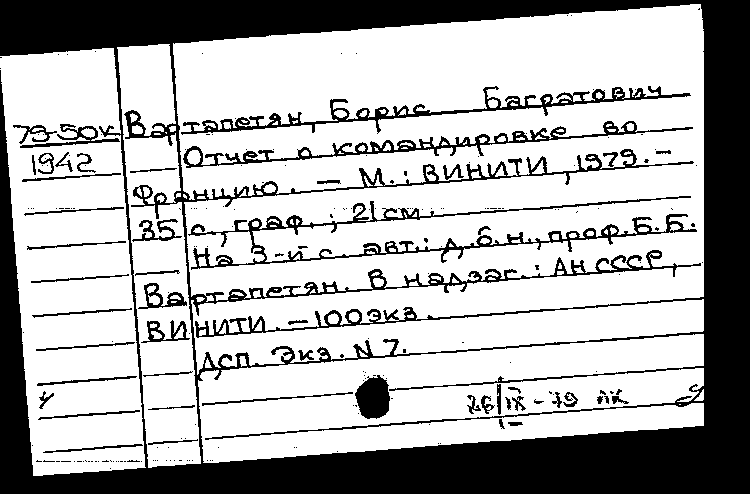 79-50к Вартапетян, Борис Багратович
1942 Отчет о командировке во
Францию. — М.: ВИНИТИ, 1979. —
35 с., граф.; 21 см.
На 3-й с. авт.: д.б.н., проф. Б.Б.
Вартапетян. В надзаг.: АН СССР,
ВИНИТИ. — 100 экз.
Дсп. Экз. N 7.
26/IX - 79